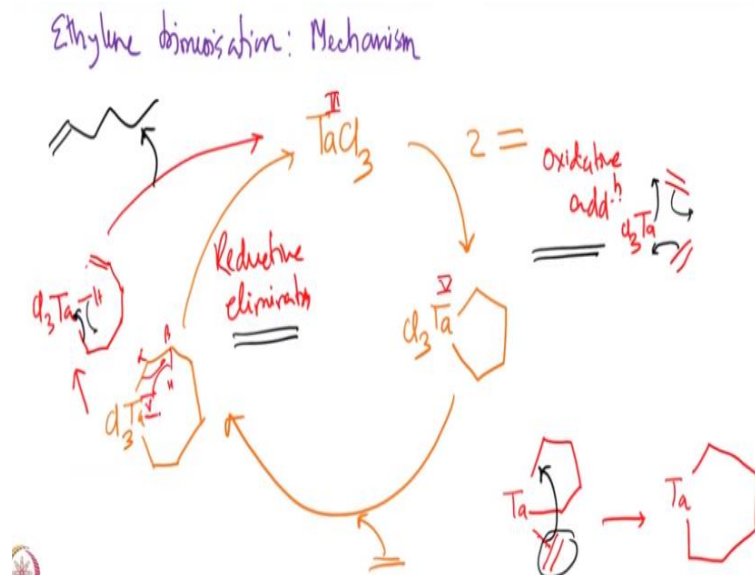 Ethylene trimerisation: Mechanism
III
TaCl3
2
Oxidative
addn
Cl3Ta
Reductive
elimination
V
Cl3Ta
Cl3Ta
H
α
β
H
V
Cl3Ta
Ta
Ta